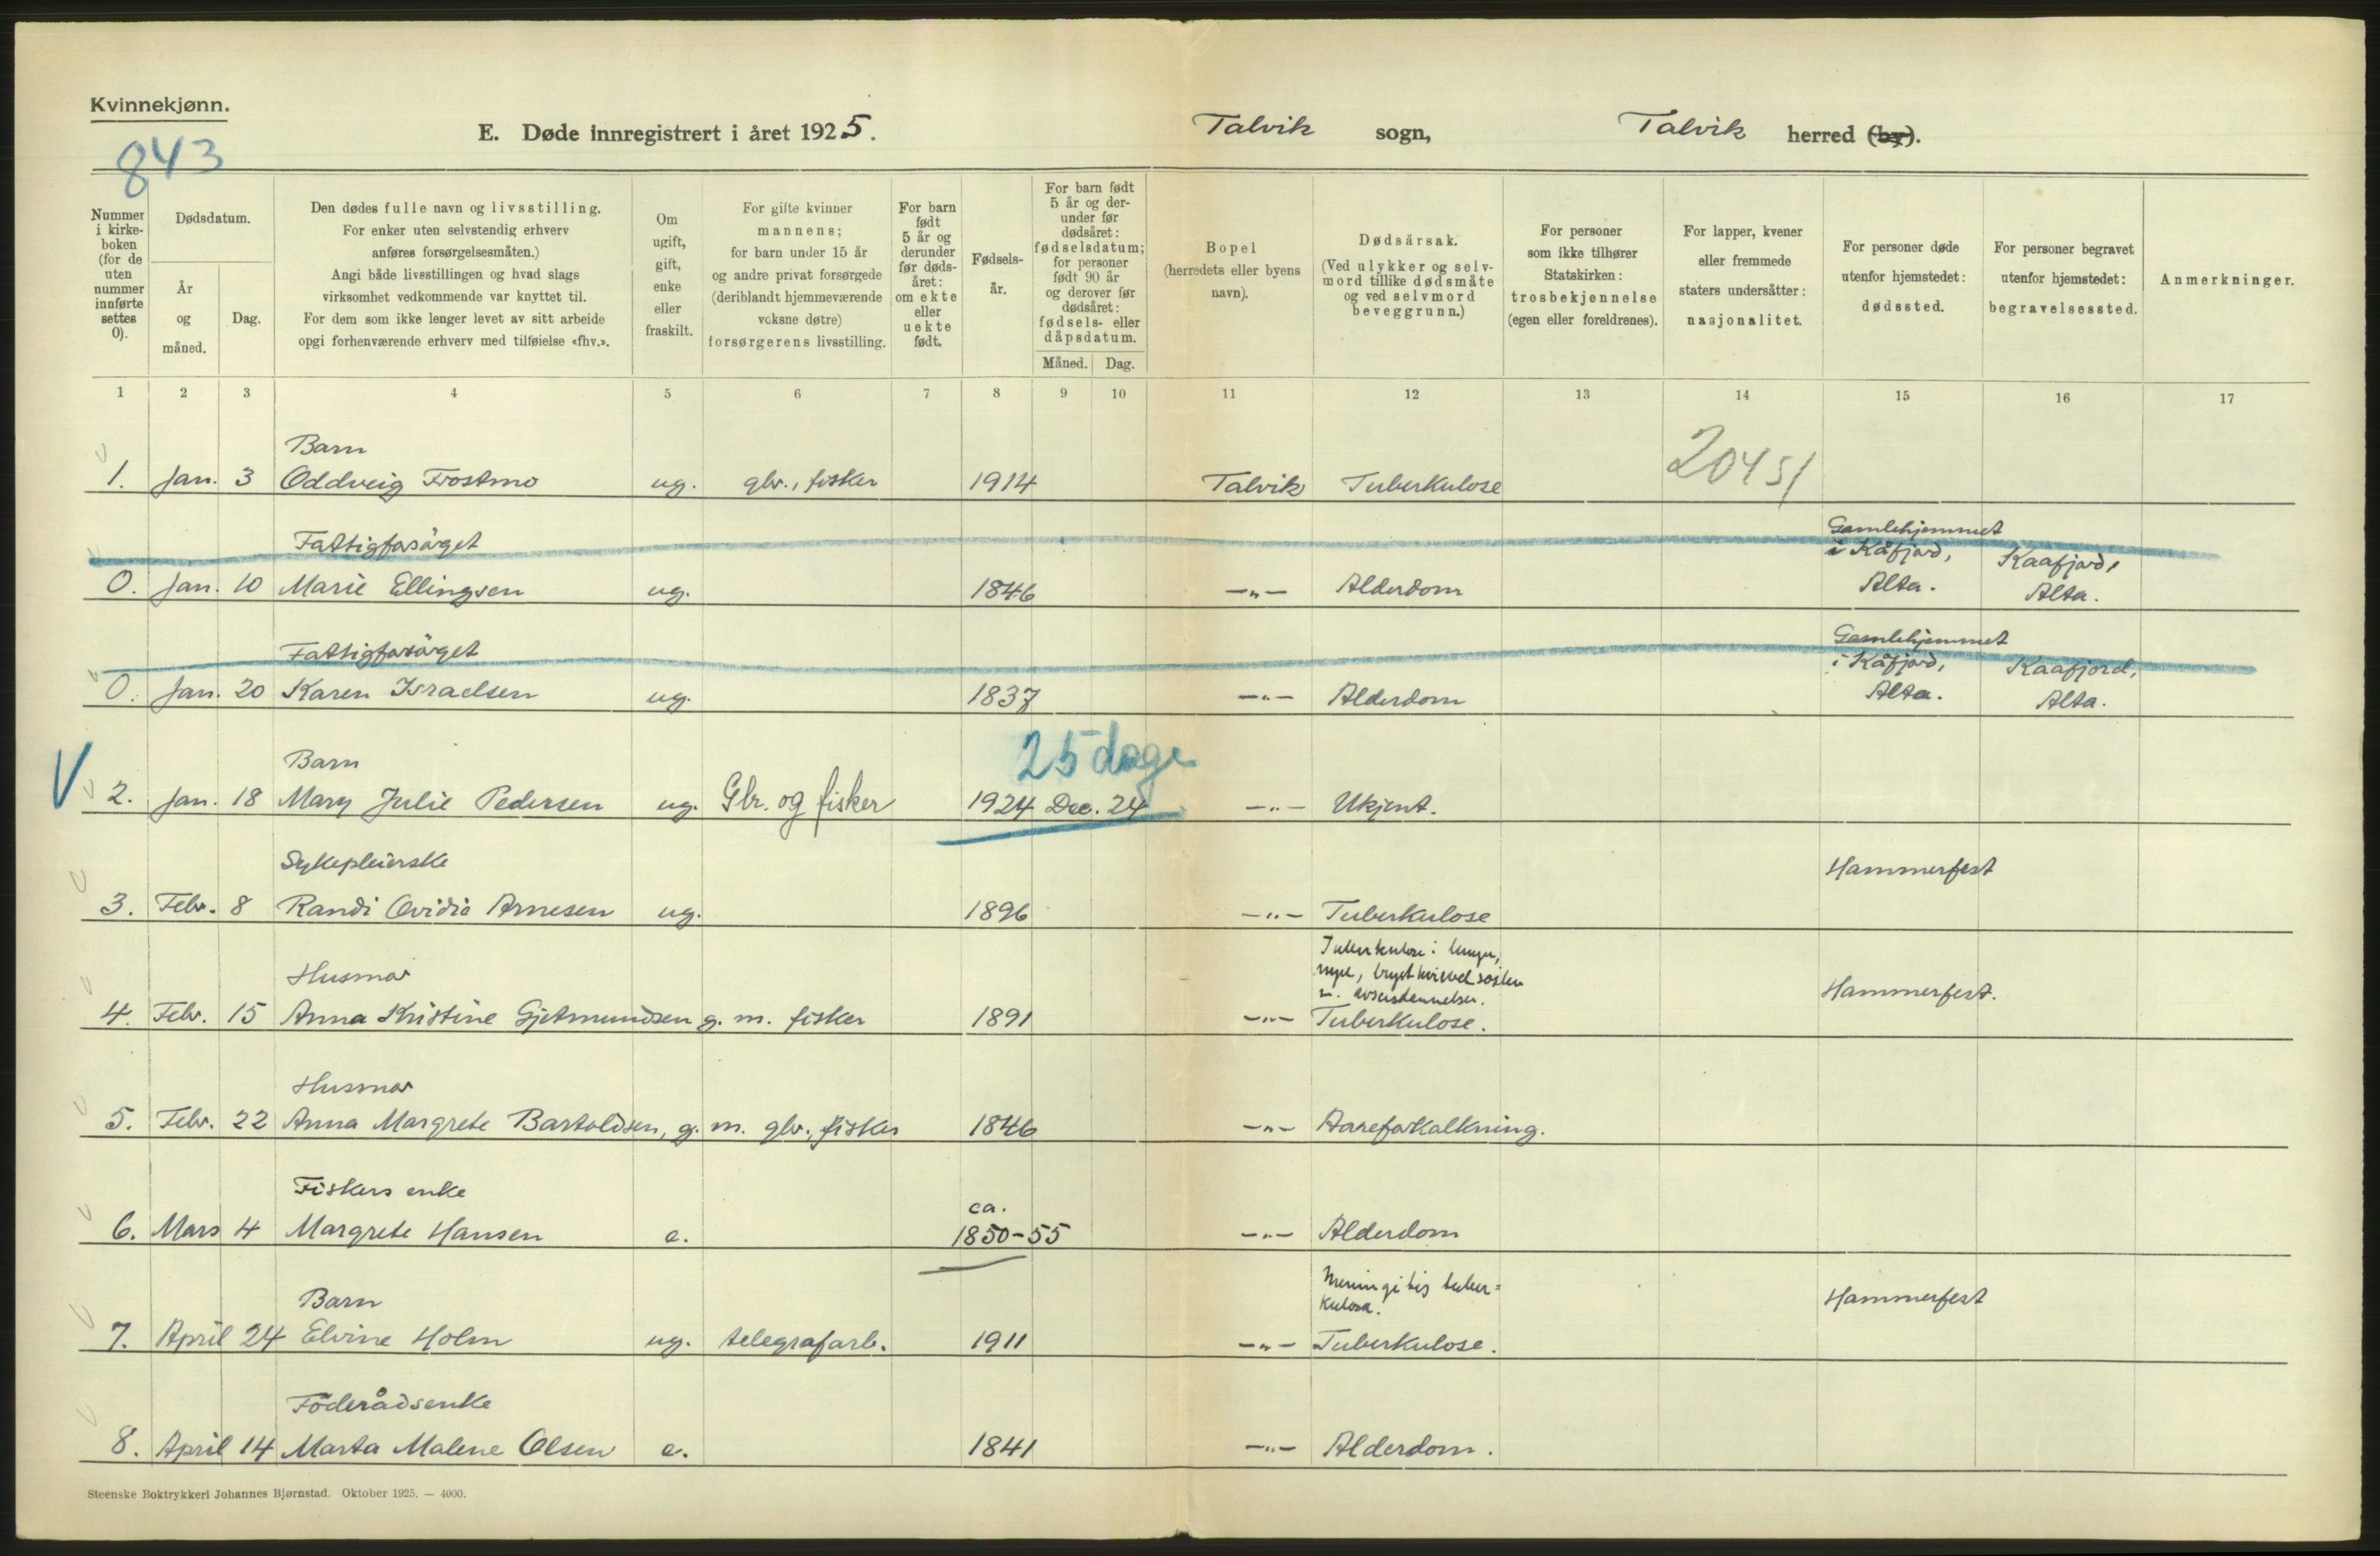 Kvinnekjønn.
E. Døde innregistrert i året 1925. Talvik sogn, Talvik herred (by).
843
Nummer i kirke-boken (for de uten nummer innførte settes 0).
Dødsdatum.
År og måned.
Dag.
Den dødes fulle navn og livsstilling.
For enker uten selvstendig erhverv
anføres forsørgelsesmåten.)
Angi både livsstillingen og hvad slags
virksomhet vedkommende var knyttet til.
For dem som ikke lenger levet av sitt arbeide
opgi forhenværende erhverv med tilføielse «fhv.».
Om ugift, gift, enke eller fraskilt.
For gifte kvinner
mannens;
for barn under 15 år
og andre privat forsørgede
(deriblandt hjemmeværende
voksne døtre)
forsørgerens livsstilling.
For barn født 5 år og derunder før døds-året: om ekte eller uekte født.
Fødsels-år.
For barn født
5 år og der-
under før
dødsåret:
fødselsdatum;
for personer
født 90 år
og derover før
dødsåret:
fødsels- eller
dåpsdatum.
Måned. Dag.
Bopel
(herredets eller byens
navn).
Dødsårsak.
(Ved ulykker og selv-
mord tillike dødsmåte
og ved selvmord
beveggrunn.)
For personer
som ikke tilhører
Statskirken:
trosbekjennelse
(egen eller foreldrenes).
For lapper, kvener
eller fremmede
staters undersåtter:
nasjonalitet.
For personer døde
utenfor hjemstedet:
dødssted.
For personer begravet
utenfor hjemstedet:
begravelsessted.
Anmerkninger.
1 2 3 4 5 6 7 8 9 10 11 12 13 14 15 16 17
Barn
1. Jan. 3 Oddveig Frostmo ug. gbr., fisker 1914 Talvik Tuberkulose
20451
Fattigforsörget
0. Jan. 10 Marie Ellingsen ug. 1846 -"- Alderdom
Gamlehjemmet
i Kåfjord,
Alta.
Kaafjord,
Alta.
Fattigforsörget
0. Jan. 20 Karen Israelsen ug. 1837 -"- Alderdom
Gamlehjemmet
i Kåfjord,
Alta.
Kaafjord,
Alta.
25 dage
Barn
V 2. Jan. 18 Mary Julie Pedersen ug. Gbr. og fisker 1924 Dec. 24 -"- Ukjent.
Sykepleierske
3. Febr. 8 Randi Ovidia Arnesen ug. 1896 -"- Tuberkulose Hammerfest
Husmor
Tuberkulose i lunger,
4. Febr. 15 Anna Kristine Gjetmundsen g. m. fisker 1891 -"- Tuberkulose. Hammerfest.
Husmor
5. Febr. 22 Anna Margrete Bartoldsen, g. m. gbr., fisker 1846 -"- Aareforkalkning.
Fiskers enke
ca.
6. Mars 4 Margrete Hansen e. 1850-55 -"- Alderdom
Barn
Meningitis tuber=
kulosa.
7. April 24 Elvine Holm ug. telegrafarb. 1911 -"- Tuberkulose. Hammerfest
Föderådsenke
8. April 14 Marta Malene Olsen e. 1841 -"- Alderdom.
Steenske Boktrykkeri Johannes Bjørnstad. Oktober 1925. — 4000.